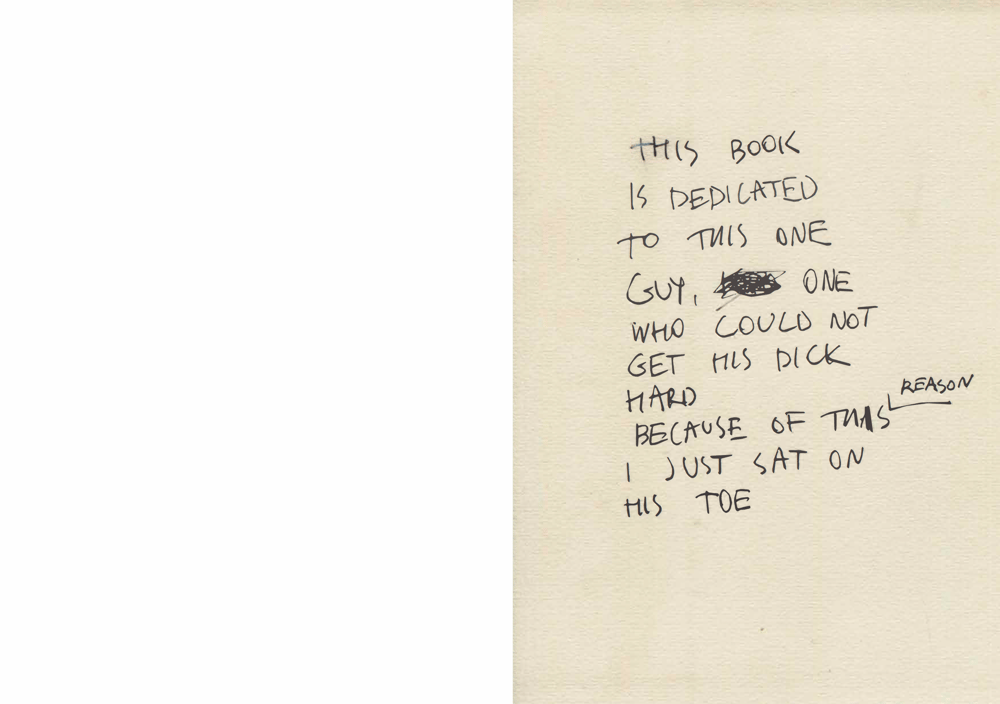 THIS BOOK
IS DEDICATED
TO THIS ONE
GUY, ONE
WHO COULD NOT
GET HIS DICK
HARD
REASON
BECAUSE OF THIS
I JUST SAT ON
HIS TOE